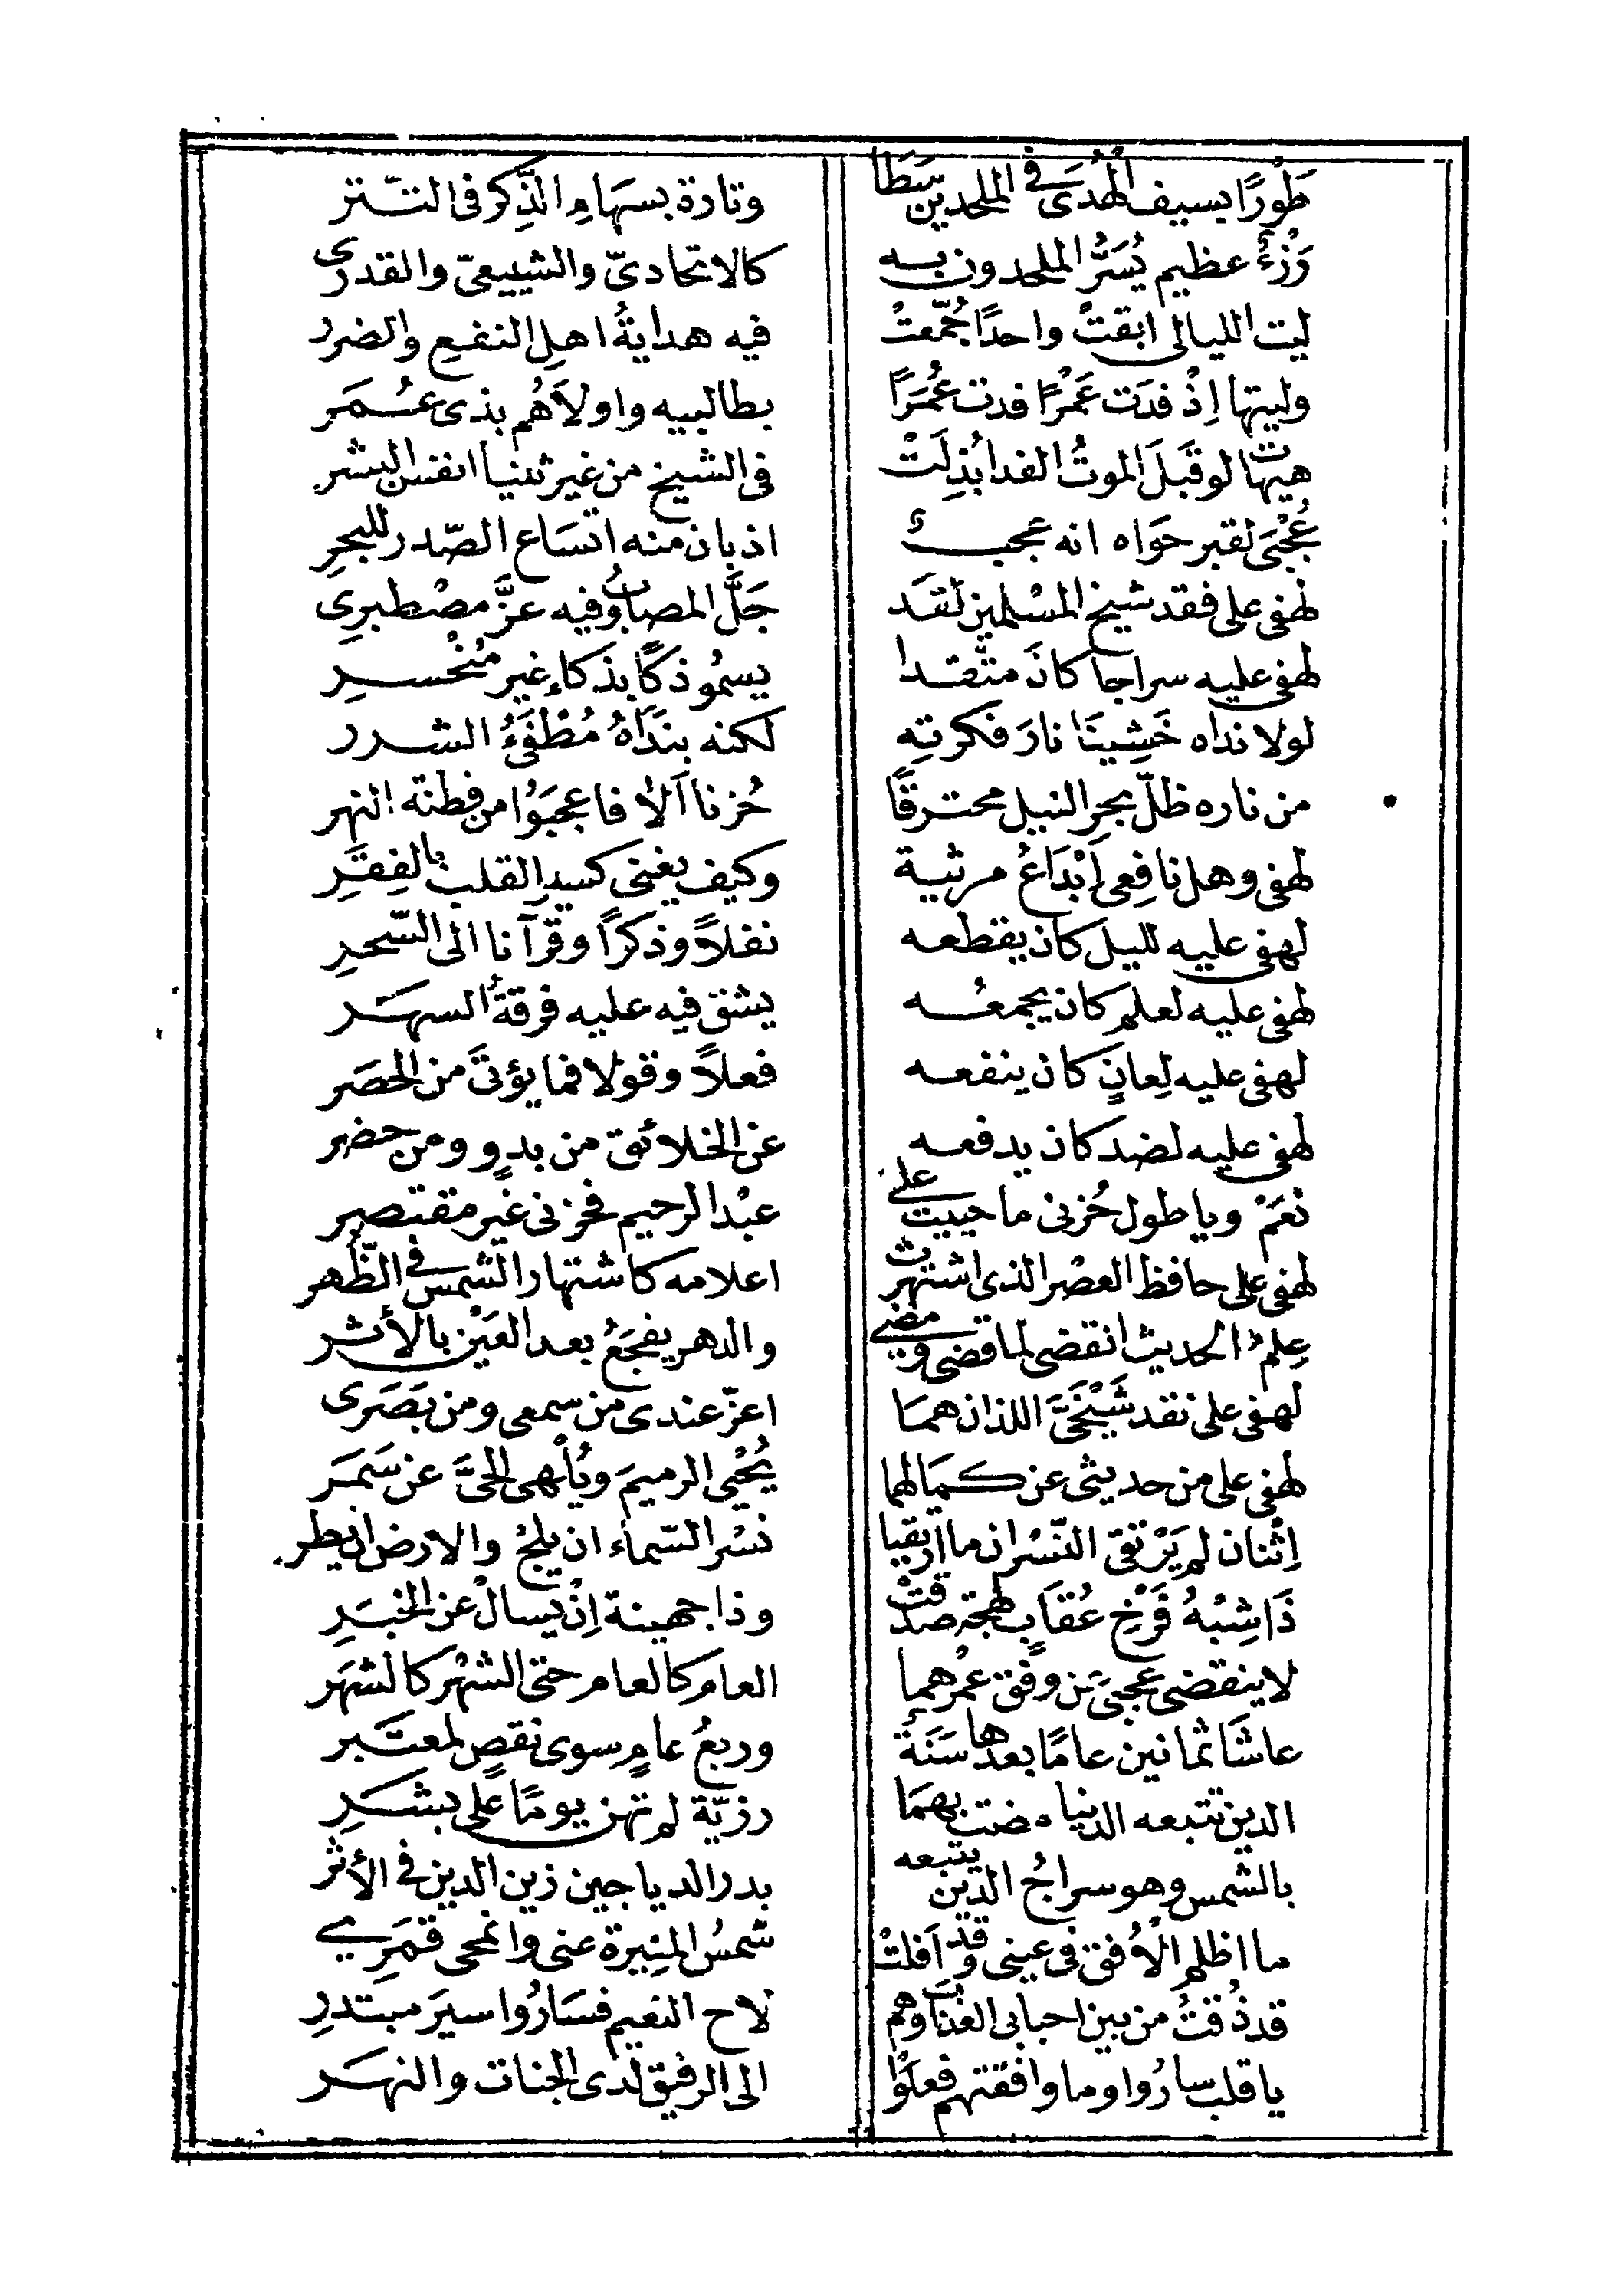 طَوْرًا بسيف الهُدَى فى الملحدين سَطَا وتارة بسهَامِ الذِّكر فى التـتر
رُزْءٌ عظيم يُسَرُّ الملحدون به كالاتحادىّ والشيعىّ والقدرى
ليت الليالى ابقتْ واحدًا جُمّعتْ فيه هدايةُ اهلِ النفع والضرر
وليتها اِذْ فدَت عَمْرًا فدت عُمَرًا بطالبيه واولاَهُم بذى عُـمَر
هيهات لو قَبَلَ الموتُ الفدا بُذِلَتْ فى الشيخ من غير ثنيا انفس البشر
عُجْبى لقبر حَواه انه عجبٌ اذ بان منه اتسَاع الصّدر للبحرِ
لهفى على فقد شيخ المسْلمين لقَد جَلَّ المصابُ وفيه عزَّ مصْطبرِى
لهفى عليه سراجا كانَ متّقدا يسمُو ذكًا بذكاءٍ غير مُنْحسـرِ
لولا نداه خَشِينَا نارَ فكرته لكنه بنَدَاهُ مُطْفَئُ الشـرر
من ناره ظلّ بحر النيل محترقًا حُزنا اَلاَ فاعجبَوُا من فِطنة النهر
لهفى وهل نافعِى اِبْدَاعُ مرثية وكيف يغنى كسير القلب بالفِقَرِ
لهفى عليه لليل كان يقطعه نفلاً وذكراً وقرآنا الى السّحرِ
لهفى عليه لعلم كان يجمعُـه يشق فيه عليه فرقةُ السهـَر
لهفى عليه لِعانٍ كان ينفعه فعلاً وقولا فما يؤتىَ من الحَصَر
لهفى عليه لضد كان يدفعه عن الخلائق من بدوٍ ومن حضر
نعَمْ ويا طول حُزنى ما حييت على عبْد الرحيم فحزنى غير مقتصر
لهفى على حافظ العصْر الذى اشتهرت اعلامه كاشتهار الشمس فى الظّهر
عِلمُ الحديث انقضى لما قضى ومضى والدهر يفجَعُ بعد العَيْن بالأثر
لهفى على فقد شَيْخَىَّ اللذان همَا اعزّ عندى من سمعى ومن بَصَرى
لهفى على من حديثى عن كمَالهما يُحْيِى الرميمَ ويُلْهى الحىَّ عن سَمَر
اِثْنان لم يَرْتقِ النّسْران ما ارتقيا نسْر السّماء ان يلحْ والارض ان يطر
ذَا شِبْهُ فَرْخِ عُقَابٍ لهجة صدقَتْ وذا جهينة اِنْ يسالْ عن الخبَرِ
لا ينقضى عجبى من وفق عمُرهما العام كالعام حتى الشهْر كالشهَر
عاشَا ثمانين عامًا بعدها سَنَةٌ وربعُ عامٍ سوى نقصٍ لمعتَبر
الدين تتبعه الدنيا مضت بهمَا رزيّة لم تهن يومًا على بشـَرِ
بالشمس وهو سراجُ الدين يتبعه بدر الدياجين زين الدين فى الأثر
ما اظلم الاُفق فى عينى وقد اَفلتْ شمسُ المنِيرة عنى وانمحى قمَرِى
قد ذُقتُ من بين احبابى العذابَ وهم لاح النعيم فسَارُوا سيرَ مبتدرِ
يا قلب سارُوا وما وافقتهم فعلَوْا الى الرفيق لدى الجنات والنهـَر